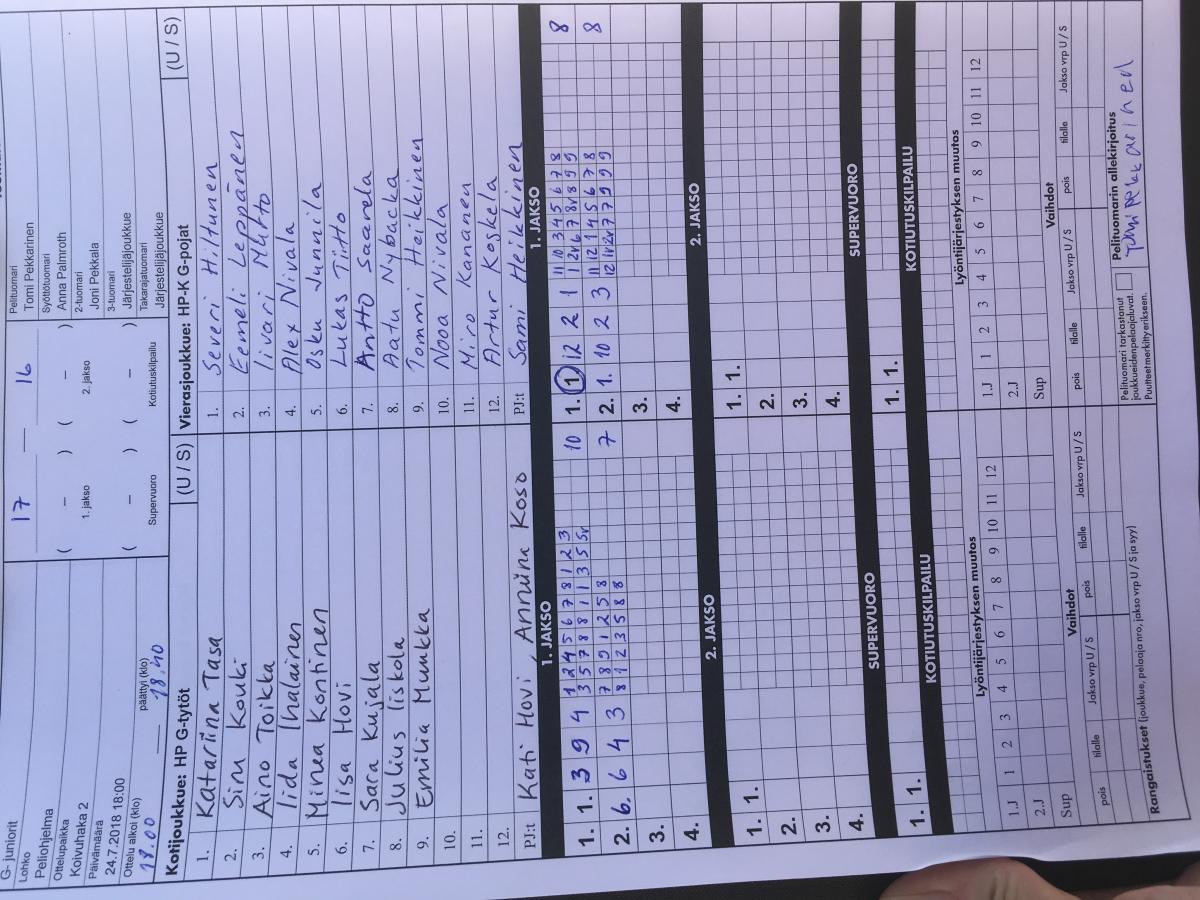 G- juniorit
Lohko
Peliohjelma
Ottelupaikka
Koivuhaka 2
Päivämäärä
24.7.2018 18:00
Ottelu alkoi (klo)
päättyi (klo)
18.00
18.40
17 — 16
( – ) ( – )
1. jakso
2. jakso
( – ) ( – )
Supervuoro
Kotiutuskilpailu
Pelituomari
Tomi Pekkarinen
Syöttötuomari
Anna Palmroth
2-tuomari
Joni Pekkala
3-tuomari
Järjestelijäjoukkue
Takarajatuomari
Järjestelijäjoukkue
Kotijoukkue: HP G-tytöt (U / S)
1. Katariina Tasa
2. Siru Kouki
3. Aino Toikka
4. Iida Ihalainen
5. Minea Kontinen
6. Iisa Hovi
7. Sara Kujala
8. Julius Iiskola
9. Emilia Muukka
10.
11.
12.
PJ:t Kati Hovi, Anniina Koso
Vierasjoukkue: HP-K G-pojat (U / S)
1. Severi Hiltunen
2. Eemeli Leppänen
3. Iivari Muhto
4. Alex Nivala
5. Osku Junnila
6. Lukas Tiitto
7. Antto Saarela
8. Aatu Nybacka
9. Tommi Heikkinen
10. Nooa Nivala
11. Miro Kananen
12. Artur Koskela
PJ:t Sami Heikkinen
1. JAKSO
1. 1. 3 9 4 1 2 4 5 6 7 8 1 2 3 10
3 5 7 8 8 1 1 3 5 5v
2. 6. 6 4 3 7 8 9 1 2 5 8 7
8 1 2 3 5 8 8
3.
4.
1. JAKSO
1. 1. 12 2 1 11 10 3 4 5 6 7 8 8
1 2v 6 7 8v 8 9 9
2. 1. 10 2 3 11 12 1 4 5 6 7 8 8
12 1v 2v 7 7 9 9 9
3.
4.
2. JAKSO
1. 1.
2.
3.
4.
2. JAKSO
1. 1.
2.
3.
4.
SUPERVUORO
1. 1.
SUPERVUORO
1. 1.
KOTIUTUSKILPAILU
KOTIUTUSKILPAILU
Lyöntijärjestyksen muutos
1.J 1 2 3 4 5 6 7 8 9 10 11 12
2.J
Sup
Vaihdot
pois tilalle Jakso vrp U / S pois tilalle Jakso vrp U / S
Lyöntijärjestyksen muutos
1.J 1 2 3 4 5 6 7 8 9 10 11 12
2.J
Sup
Vaihdot
pois tilalle Jakso vrp U / S pois tilalle Jakso vrp U / S
Rangaistukset (joukkue, pelaaja nro, jakso vrp U / S ja syy)
Pelituomari tarkastanut
joukkueiden pelaajaluvat.
Puutteet merkitty erikseen.
Pelituomarin allekirjoitus